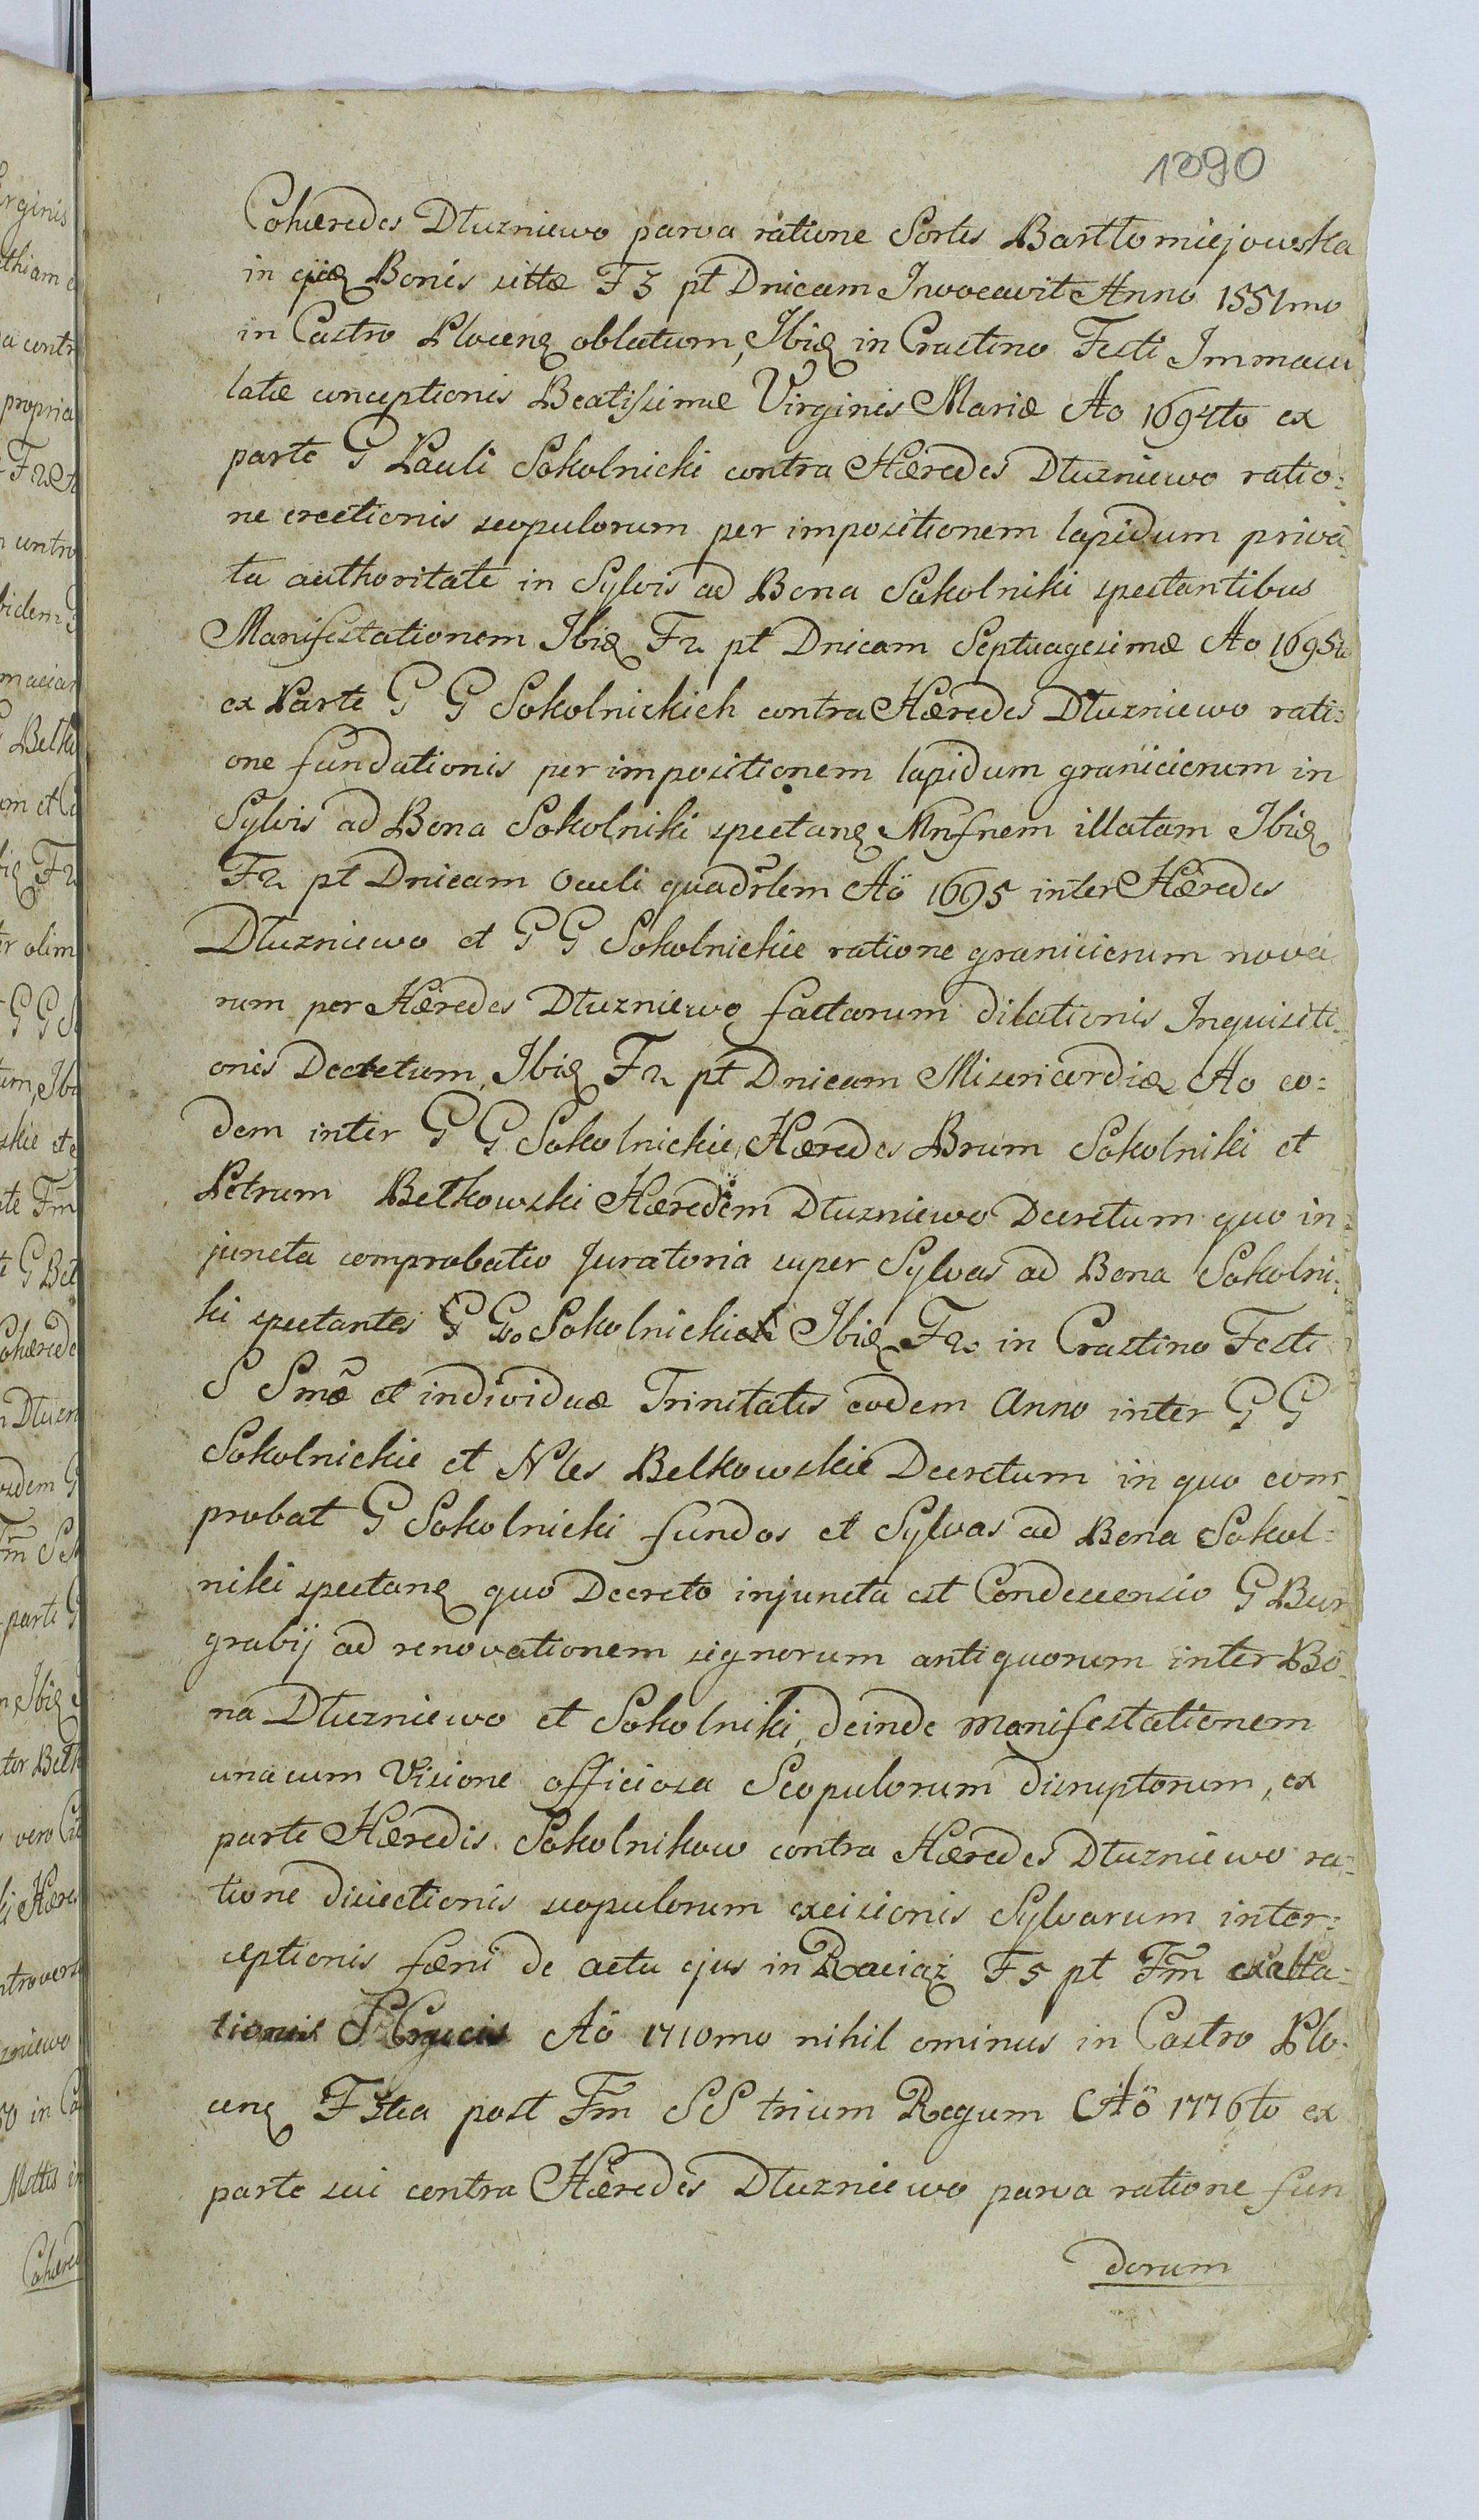 1390
Cohæredes Dłuzniewo parva ratione Sortis Bartłomiejowska
in ejus Bonis sittæ F3 pt Dnicam Invocavit Anno 1551mo
in Castro Plocenȝ oblatum, Ibiȝ in Crastino Festi Immacu
latæ conceptionis Beatissimæ Virginis Mariæ Ao 1694to ex
parte G Pauli Sokolnicki contra Hæredes Dłuzniewo ratio:
ne erectionis scopulorum per impositionem lapidum priva
ta authoritate in Sylvis ad Bona Sokolniki spectantibus
Manifestationem Ibiȝ F2 pt Dnicam Septuagesimæ Ao 1695to
ex Parte G G Sokolnickich contra Hæredes Dłuzniewo rati:
one fundationis per impositionem lapidum granicierum in
Sylvis ad Bona Sokolniki spectanȝ Mnfnem illatam Ibiȝ
F2 pt Dnicam Oculi quadrlem Aö 1695 inter Hæredes
Dłuzniewo et G G Sokolnickie ratione granicierum nova
rum per Hæredes Dłuzniewo factarum dilationis Inquisiti:
onis Decretum, Ibiȝ F2 pt Dnicam Misericordiæ Ao eo:
dem inter G G Sokolnickie Hæredes Brum Sokolniki et
Petrum Bełkowski Hæredem Dłuzniewo Decretum quo in:
juncta comprobatio Juratoria super Sylvas ad Bona Sokolni:
ki spectantes G G Sokolnickich Ibiȝ F2 in Crastino Festi
S Smæ et individuæ Trinitatis eodem Anno inter G G
Sokolnickie et Nles Bełkowskie Decretum in quo com:
probat G Sokolnicki fundos et Sylvas ad Bona Sokol:
niki spectanȝ quo Decreto injuncta est Condescensio G Bur
grabij ad renovationem signorum antiquorum inter Bo:
na Dłuzniewo et Sokolniki, deinde manifestationem
unacum Visione officiosa Scopulorum disruptorum, ex
parte Hæredis Sokolnikow contra Hæredes Dłuzniewo ra:
tione disiectionis scopulorum excisionis Sylvarum inter:
ceptionis fæni de actu ejus in Raciąz F5 pt Fm exalta:
tionis S Crucis Aö 1710mo nihil ominus in Castro Plo:
cenȝ F3tia post Fm SS trium Regum Aö 1776to ex
parte sui contra Hæredes Dłuzniewo parva ratione fun
dorum